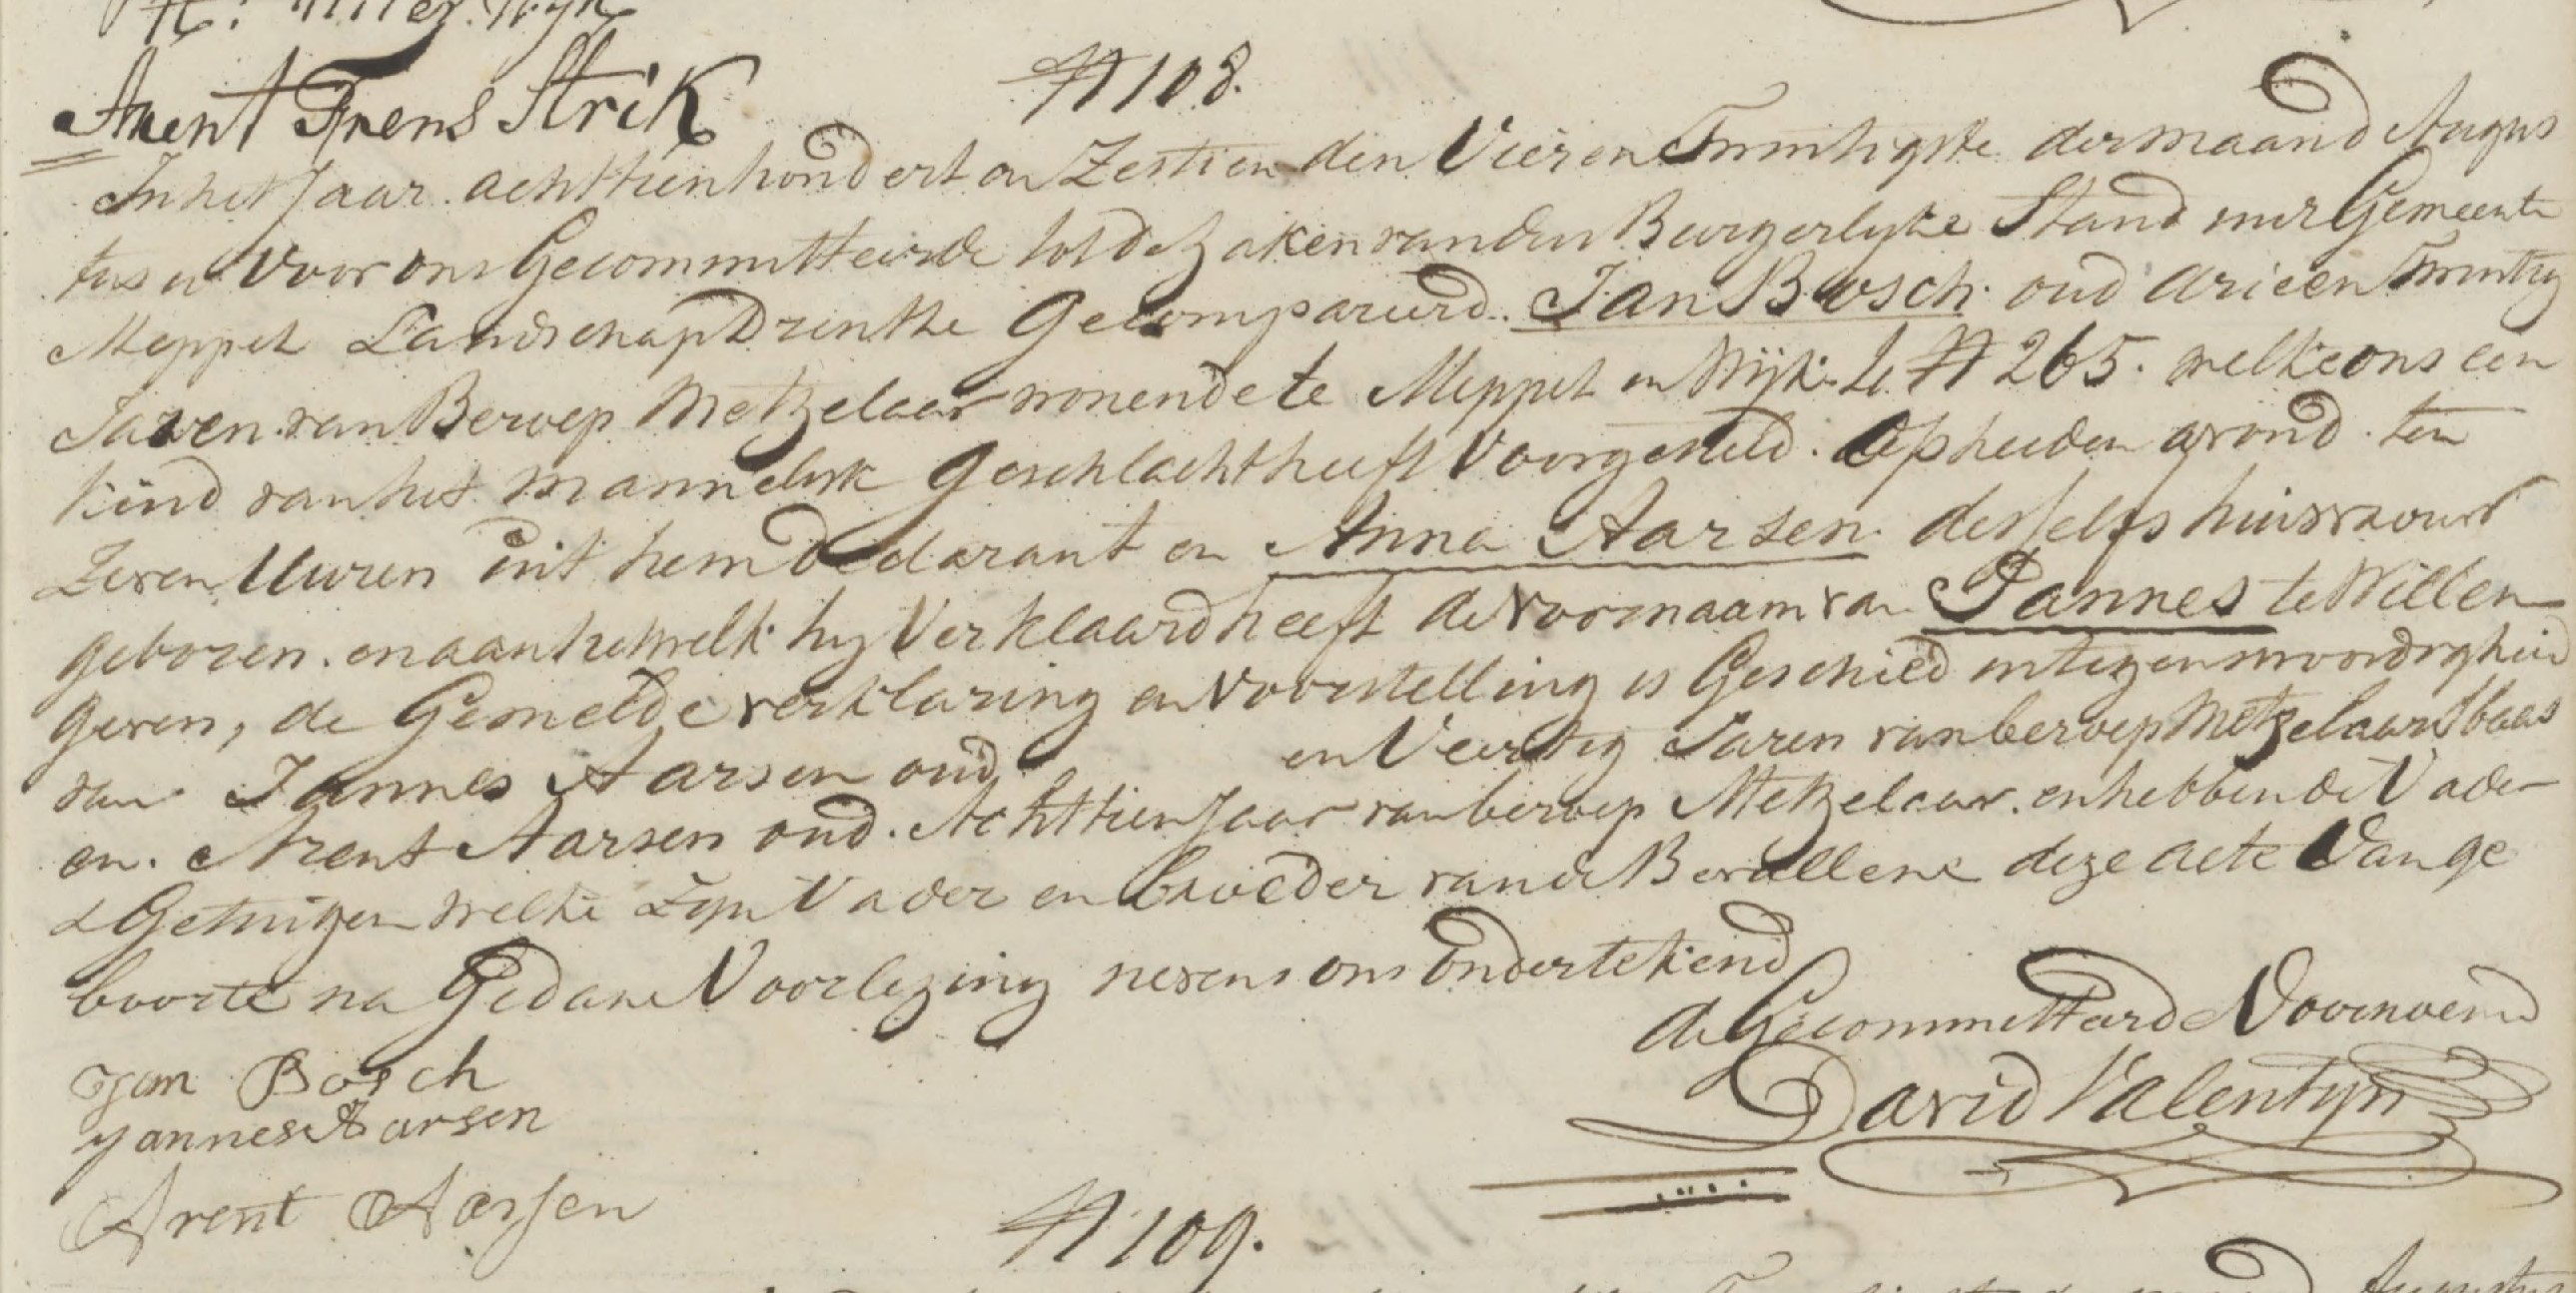 Arent Frens Strik
N 108.
In het Jaar achttien hondert en Zestien den Vier en Twintigste der maand Augus
tus is Voor ons Gecommitteerde tot de Zaken van den Burgerlyke Stand in der Gemeente
Meppel Landschap Drenthe Gecompareerd. Jan Bosch oud drieen Twintig
Jaren van Beroep Metzelaar wonende te Meppel in Wijk L. N 265. welke ons een
kind van het mannelyk Geschlacht heeft Voorgesteld. Op heeden avond ten
Zeven Uuren uit hem Declarant en Anna Aarsen desselfs huisvrouw
geboren. en aan het welk hy Verklaard heeft de voornaam van Jannes te Willen
geven, de Gemelde verklaring en Voorstelling is Geschied in tegenwoordigheid
van Jannes Aarsen oud en Veertig Jaren van beroep Metzelaars baas
en. Arent Aarsen oud. Achttien Jaar van beroep Metzelaar. en hebben de Vader
& Getuigen welke Zyn Vader en broeder van de Bevallene deze acte Van ge
boorte na Gedane Voorlezing nevens ons ondertekend
de Gecommitteerde Voornoemd
Jan Bosch
David Valentyn
Yannes Aarsen
Arent Aarsen
N 109.